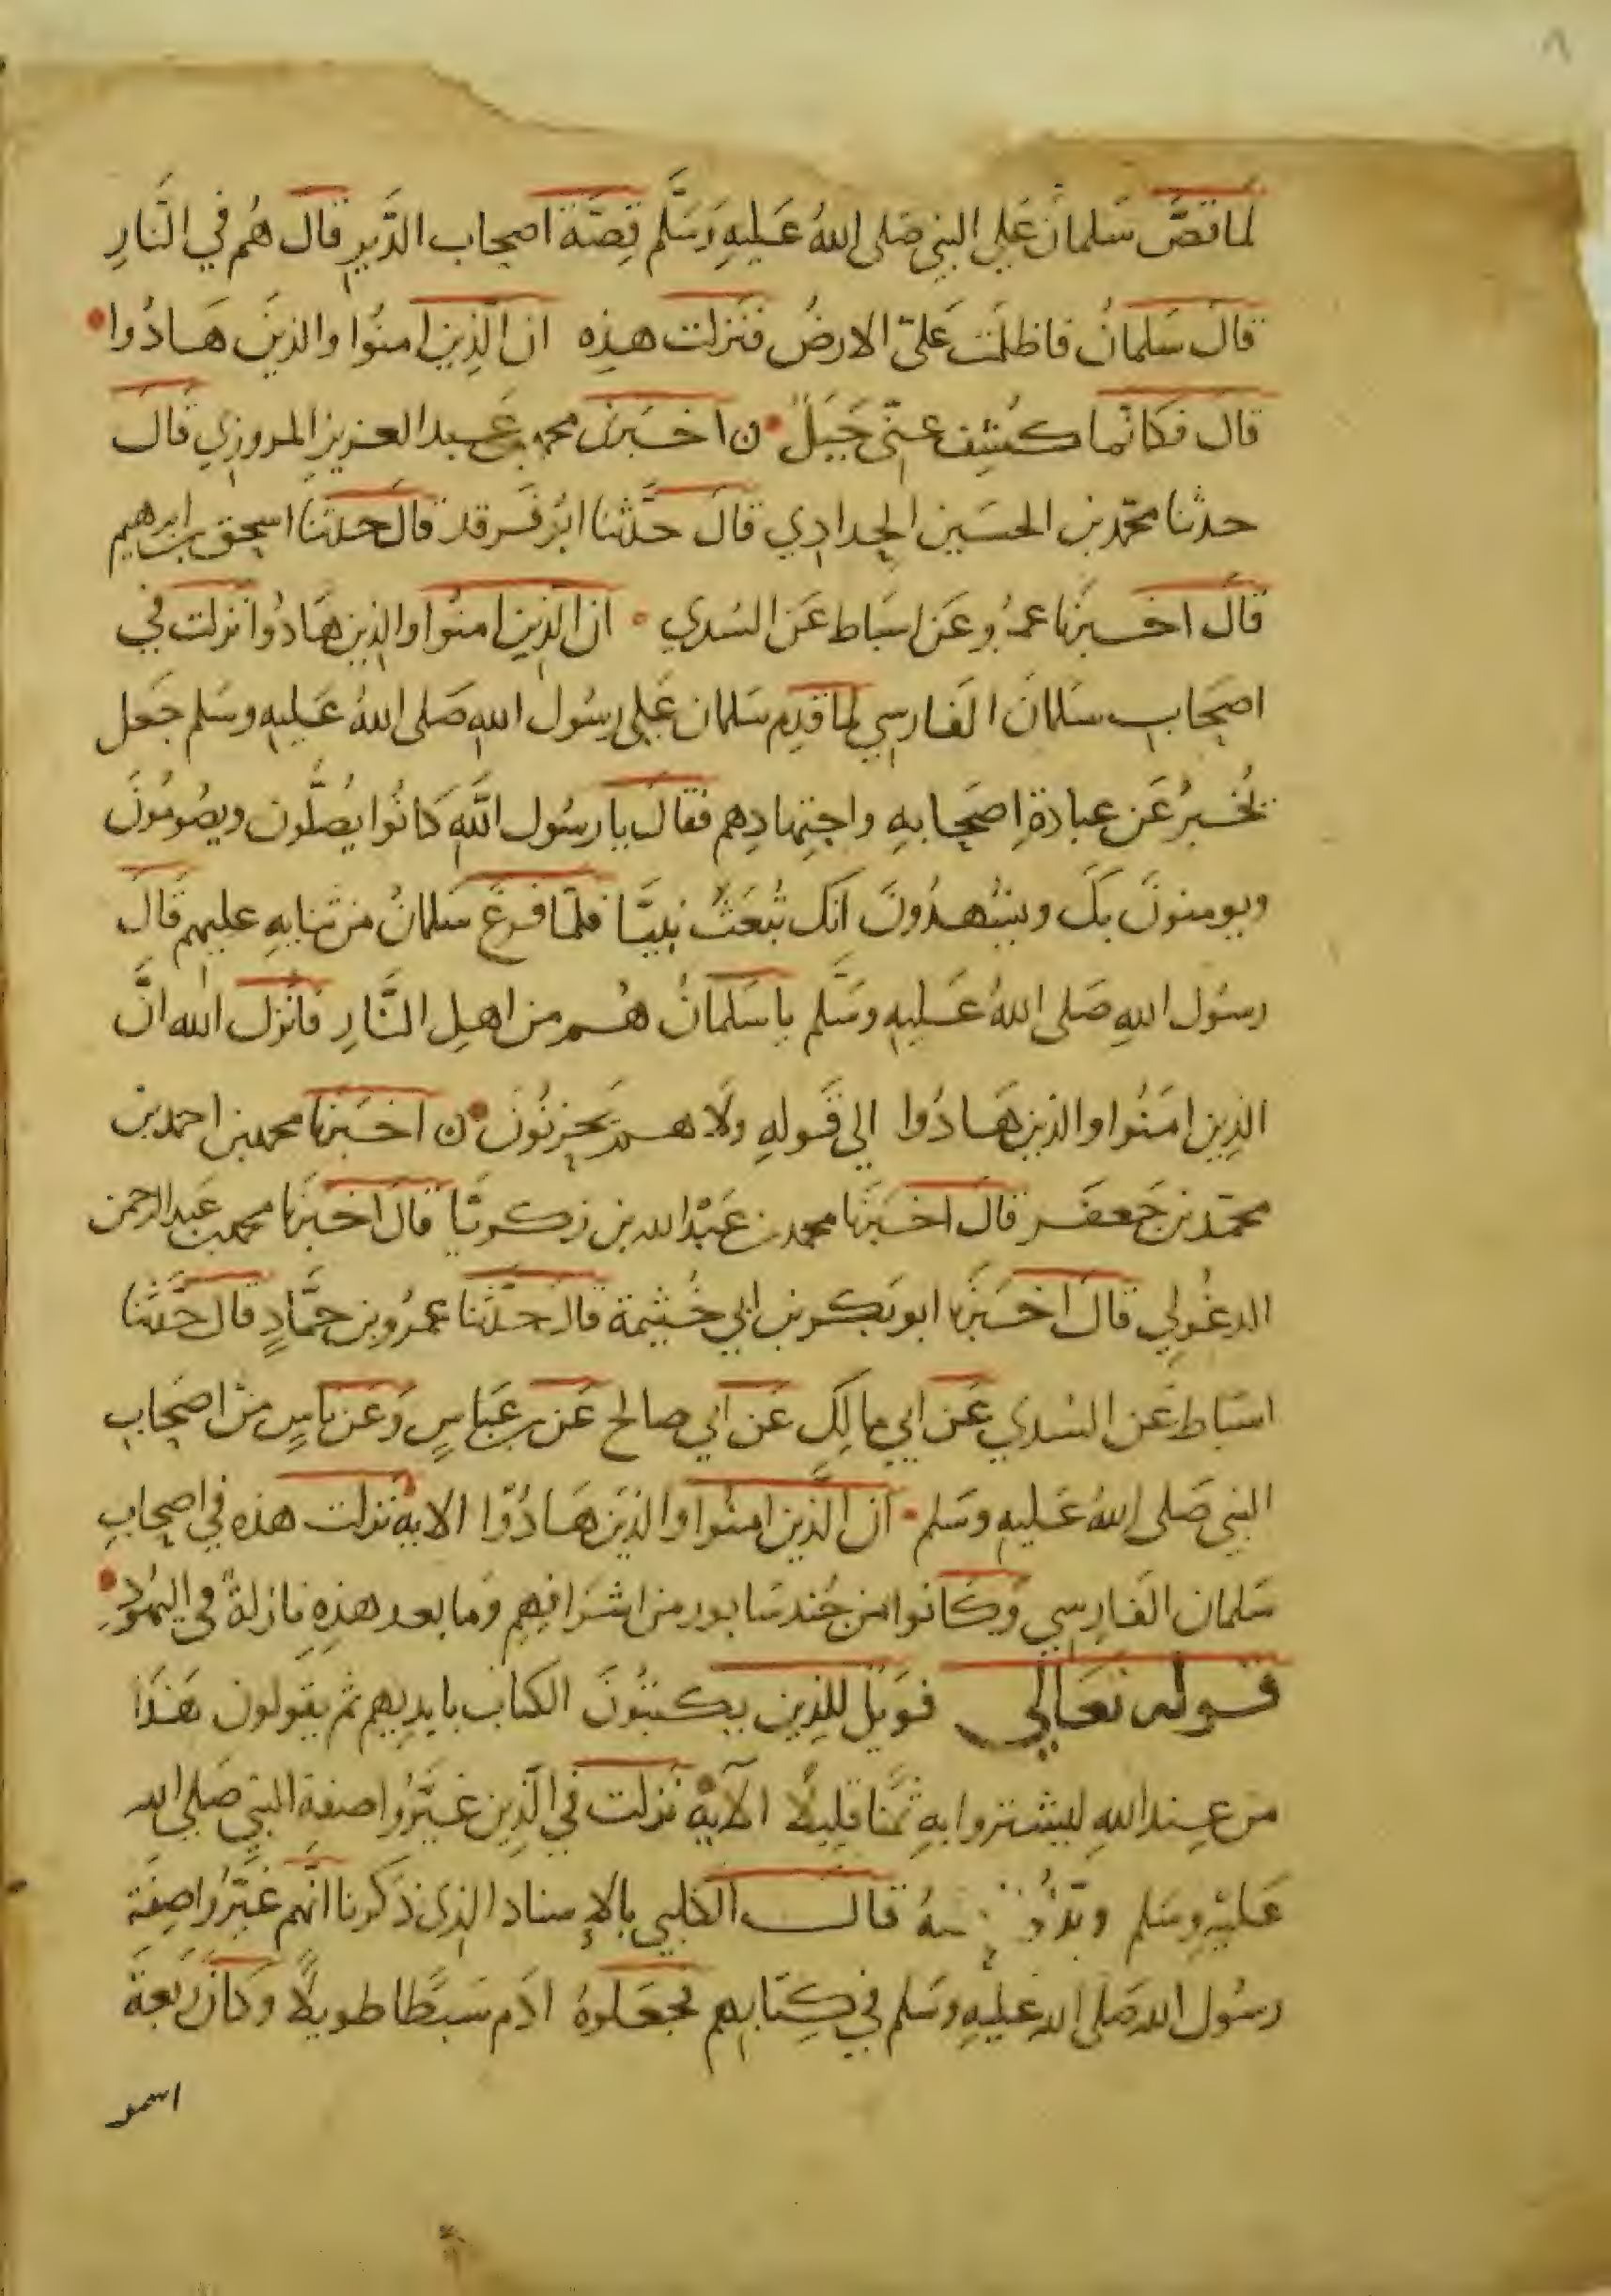 لما قصَّ سَلمانُ عَلى النبي صَلى اللهُ عَليهِ وَسَلَّم قِصَّة اصحاب الدَّيرِ قال هُم في النَّارِ
قال سَلمانُ فاظلَمَت عَليّ الارضُ فنَزلت هذِه ان الّذِين امنُوا والذينَ هَادُوا
قال فكانّما كُشِف عنّي جَبَلٌ ن اخبَرنا محمد بن عَبد العزيز المروزي قال
حدثنا محمّد بن الحسَين الحدادي قال حدَّثنا ابُو فَرقد قال حدثنا اسحق بن ابرهيم
قال اخبرَنا عمرُو عَن اسبَاط عَن السُدي ان الّذِين امنُوا والذِين هَادُوا نزلت في
اصحَاب سَلمانَ الفَارسِي لما قدِم سَلمان عَلى رسُول اللهِ صَلى اللهُ عَليهِ وسَلم جَعل
يُخبرُ عَن عبادةِ اصحَابهِ واجتهادِهم فقال يا رسُول اللَّهِ كانُوا يُصَلُّون ويصُومُونَ
ويومنونَ بكَ ويشهدُونَ انَك تُبعَثُ نبيًّا فلمّا فرغَ سَلمانُ من ثنايهِ عليهم قال
رسُول اللهِ صَلى اللهُ عَليهِ وسَلَّم يا سَلمانُ هُم من اهلِ النَّارِ فانزل الله انَّ
الذِين امَنُوا والذين هَادُوا الى قَولهِ ولا هم يَحزنُونَ ن اخبَرنا محمد بن احمد بن
محمّد بن جَعفَر قال اخبَرنا محمد بن عَبْد الله بن زكريّا قال اخبَرنا محمد بن عَبد الرحمن
الدغُولي قال اخبَرنا ابو بَكر بن ابي خُثيمة قال حدَّثنا عمرُو بن حمَّادٍ قال حدَّثنا
اسبَاط عَن السُدي عَن ابي مالِكٍ عَن ابي صالح عَن بن عبَاسٍ وَعَن ناسٍ منْ اصحَاب
النبي صَلى اللهُ عَليهِ وسَلم ان الَّذين امنُوا والذينَ هَادُوا الاية نزلت هذه في اصحاب
سَلمان الفَارسِي وكَانوا من جُندسَابور من اشرَافِهِم وَما بعد هذِهِ نازلةً في اليهُودِ
قوله تعَالى فوَيل للذِين يكتبُونَ الكتاب بايدِيهِم ثم يقولون هَذا
من عِند اللهِ ليشتروا بهِ ثمَنًا قليلًا الآية نزلت في الّذِين غيَّرُوا صفة النبي صَلى الله
عَليْهِ وسَلم قالَ الكلبي بالإسناد الذِى ذكَرنا انَّهم غيَّرُوا صِفَة
رسُول الله صَلى الله عَليْهِ وسَلم في كِتابهِم فجَعَلوهُ ادَم سَبطًا طويلًا وكَان رَبعَة
اسمر